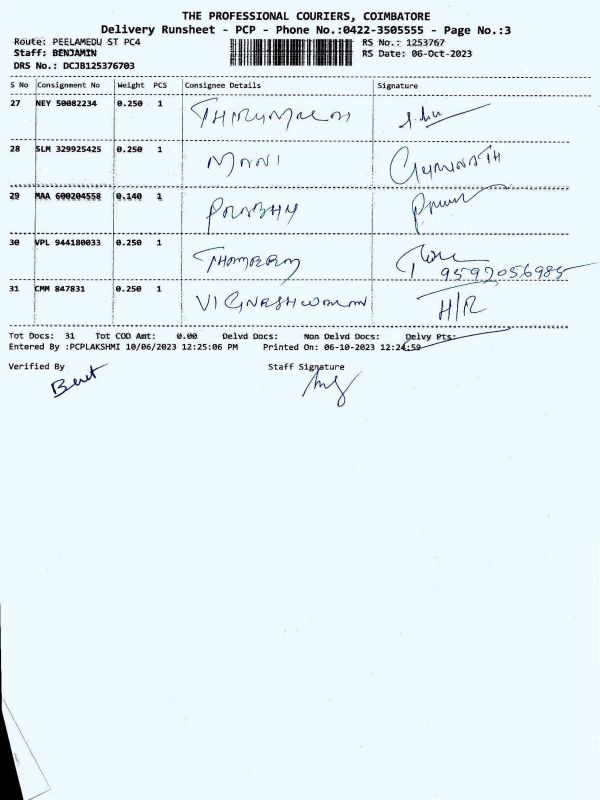 THE PROFESSIONAL COURIERS, COIMBATORE
Delivery Runsheet - PCP - Phone No.:0422-3505555 - Page No.:3
Route: PEELAMEDU ST PC4 RS No.: 1253767
Staff: BENJAMIN RS Date: 06-Oct-2023
DRS No.: DCJB125376703
S No Consignment No Weight PCS Consignee Details Signature
27 NEY 50082234 0.250 1
28 SLM 329925425 0.250 1 MANI GUMINATH
29 MAA 600204558 0.140 1 PRABHU
30 VPL 944180033 0.250 1
9592056985
31 CMM 847831 0.250 1 VIGNESHWARAN H/R
Tot Docs: 31 Tot COD Amt: 0.00 Delvd Docs: Non Delvd Docs: Delvy Pts:
Entered By :PCPLAKSHMI 10/06/2023 12:25:06 PM Printed On: 06-10-2023 12:24:59
Verified By Staff Signature